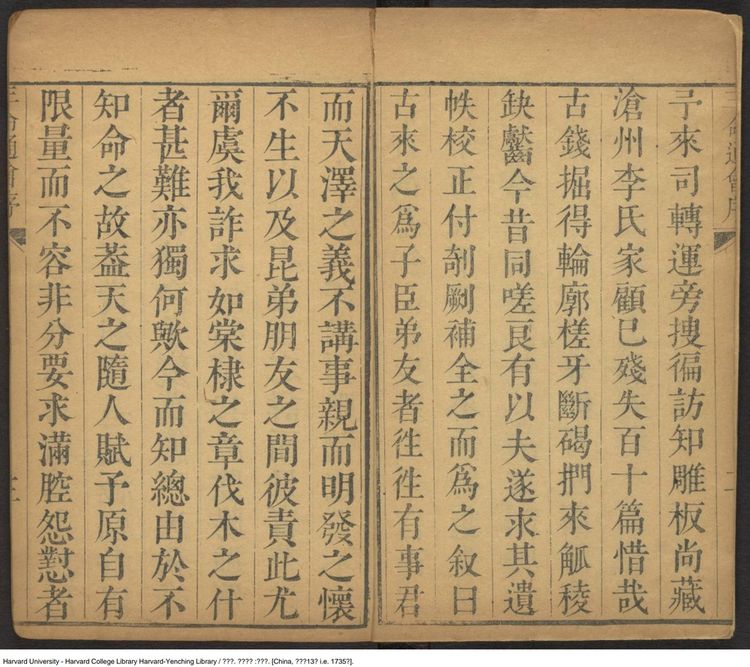 予來司轉運旁搜徧訪知雕板尚藏
滄州李氏家顧已殘失百十篇惜哉
古錢掘得輪廓槎牙斷碣捫來觚稜
缺齾今昔同嗟良有以夫遂求其遺
帙校正付剞劂補全之而爲之叙曰
古來之爲子臣弟友者徃徃有事君
而天澤之義不講事親而明發之懷
不生以及昆弟朋友之間彼責此尤
爾虞我詐求如棠棣之章伐木之什
者甚難亦獨何歟今而知總由於不
知命之故葢天之隨人賦予原自有
限量而不容非分要求滿腔怨懟者
命通會序
命通會序
Harvard University - Harvard College Library Harvard-Yenching Library / ???. ???? :???. [China, ???13? i.e. 1735?].